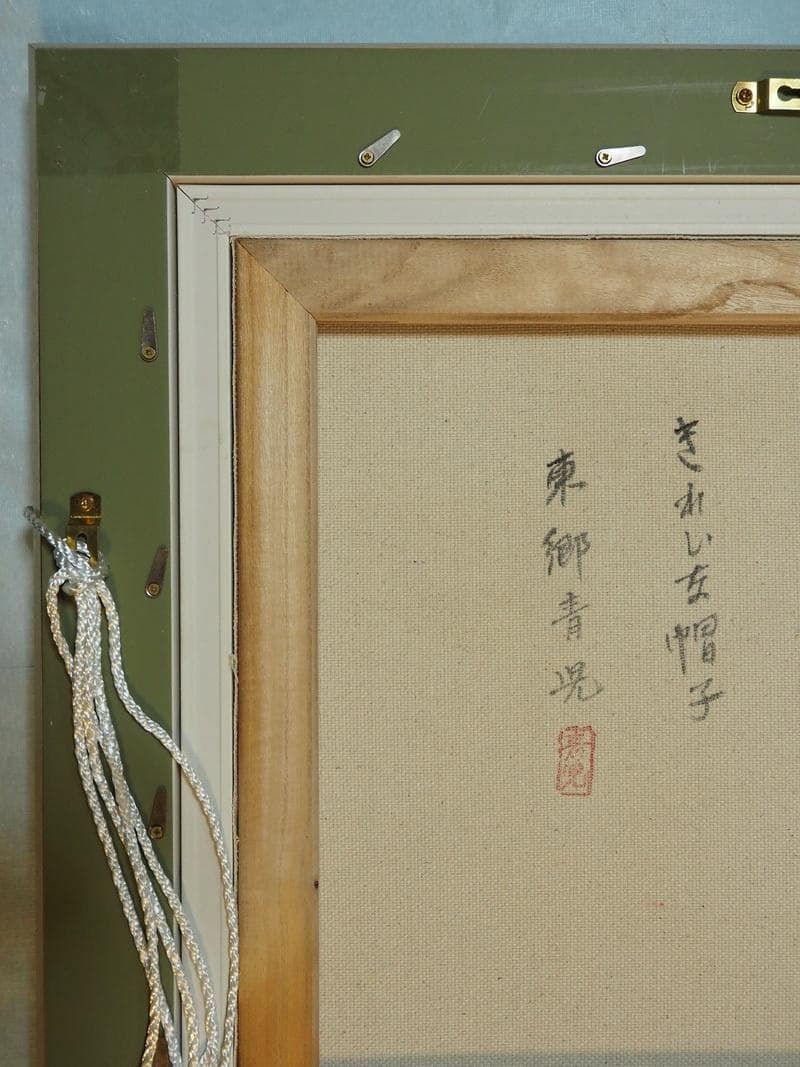 きれいな帽子
東郷青児
青児